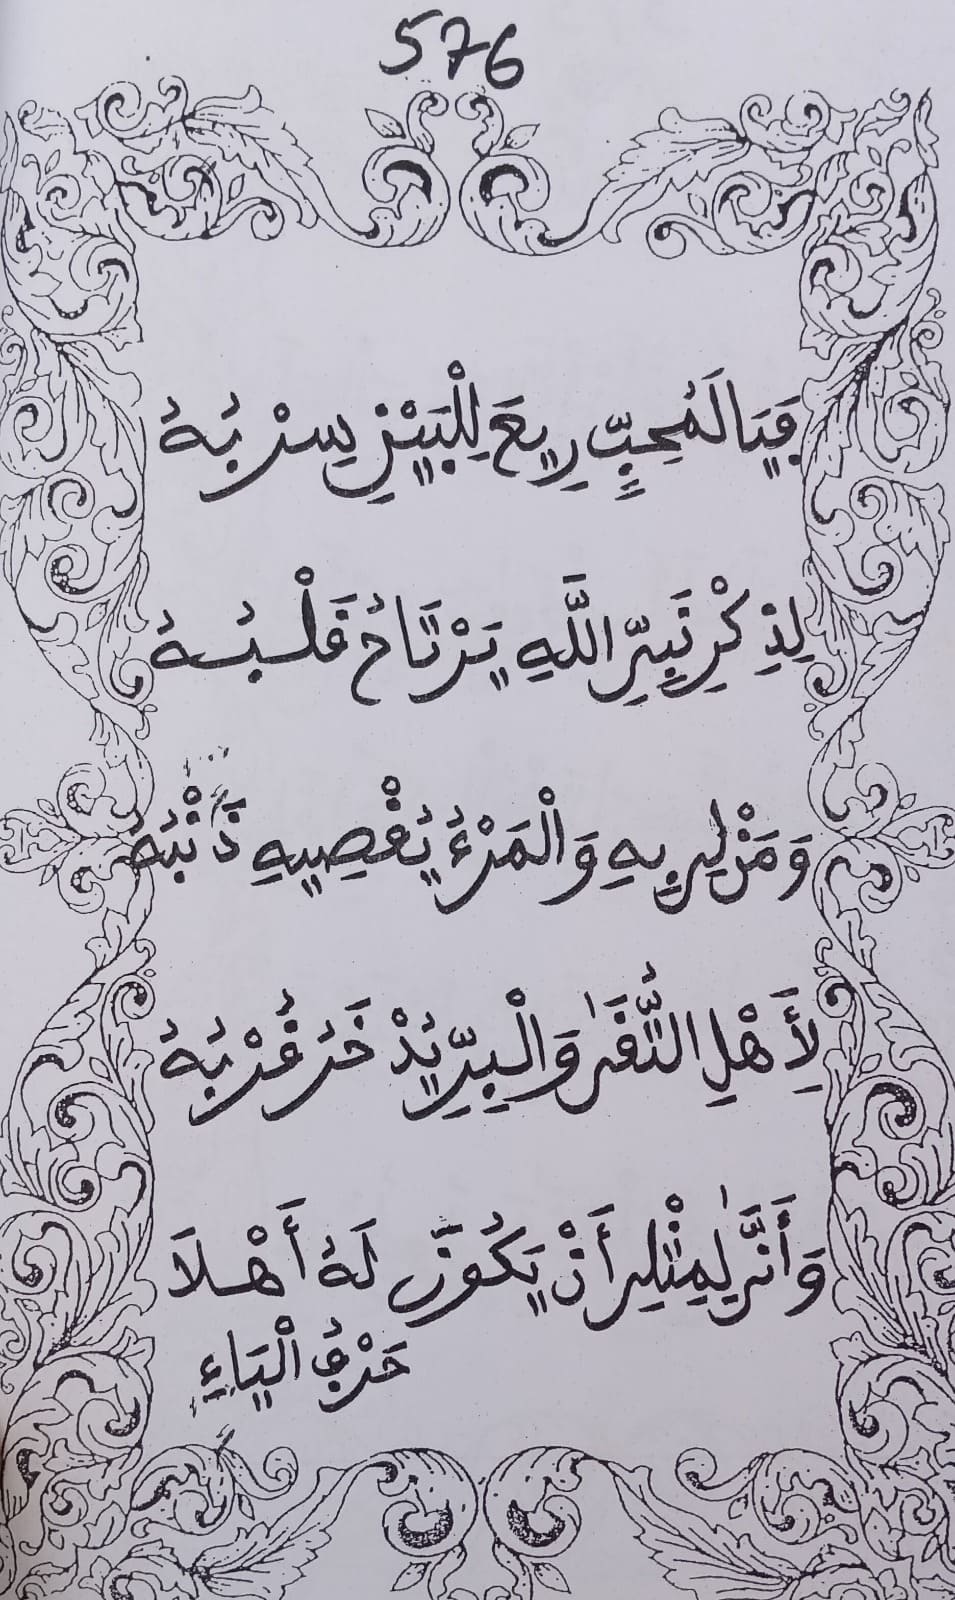 576
فَيَا لَمُحِبٍّ رِيعَ لِلْبَيْنِ سِرْبُهُ
لِذِكْرِ نَبِيِّ اللَّهِ يَرْتَاحُ قَلْبُهُ
وَمَنْ لِي بِهِ وَالْمَرْءُ يُقْصِيهِ ذَنْبُهُ
لِأَهْلِ التُّقَىٰ وَالْبِرِّ يُذْخَرُ قُرْبُهُ
وَأَنَّىٰ لِمِثْلِي أَنْ يَكُونَ لَهُ أَهْلَا
حَرْفُ الْيَاءِ